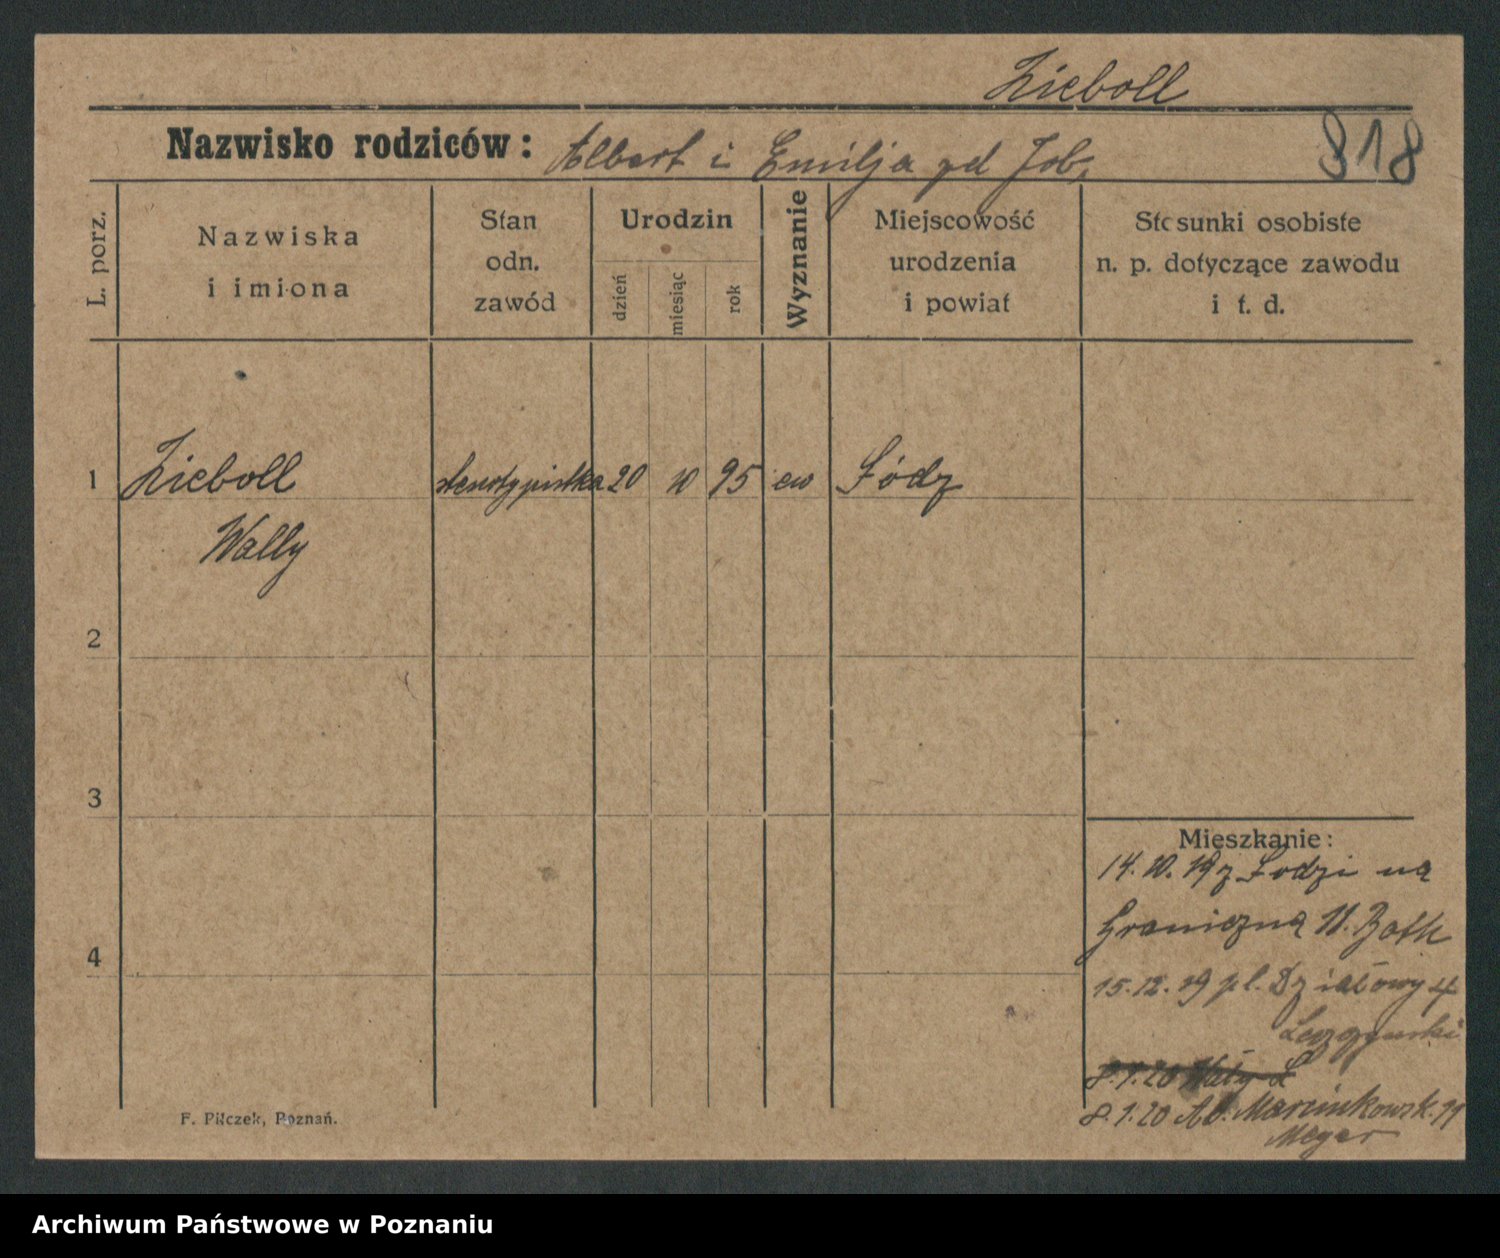 Zieboll
Nazwisko rodziców: Albert i Emilja gd Job,
818
L. porz.
Nazwiska i imiona
Stan odn. zawód
Urodzin
dzień
miesiąc
rok
Wyznanie
Miejscowość urodzenia i powiat
Stosunki osobiste n. p. dotyczące zawodu i t. d.
1 Zieboll stenotypistka 20 10 95 ew Łódz
Wally
2
3
4
Mieszkanie:
14.10.19 z Łodzi na
Graniczną 11.
15.12.19 pl. Działowy 4
8.1.20
8.1.20 Al. Marcinkowsk. 11
Meyer
F. Pilczek, Poznań.
Archiwum Państwowe w Poznaniu